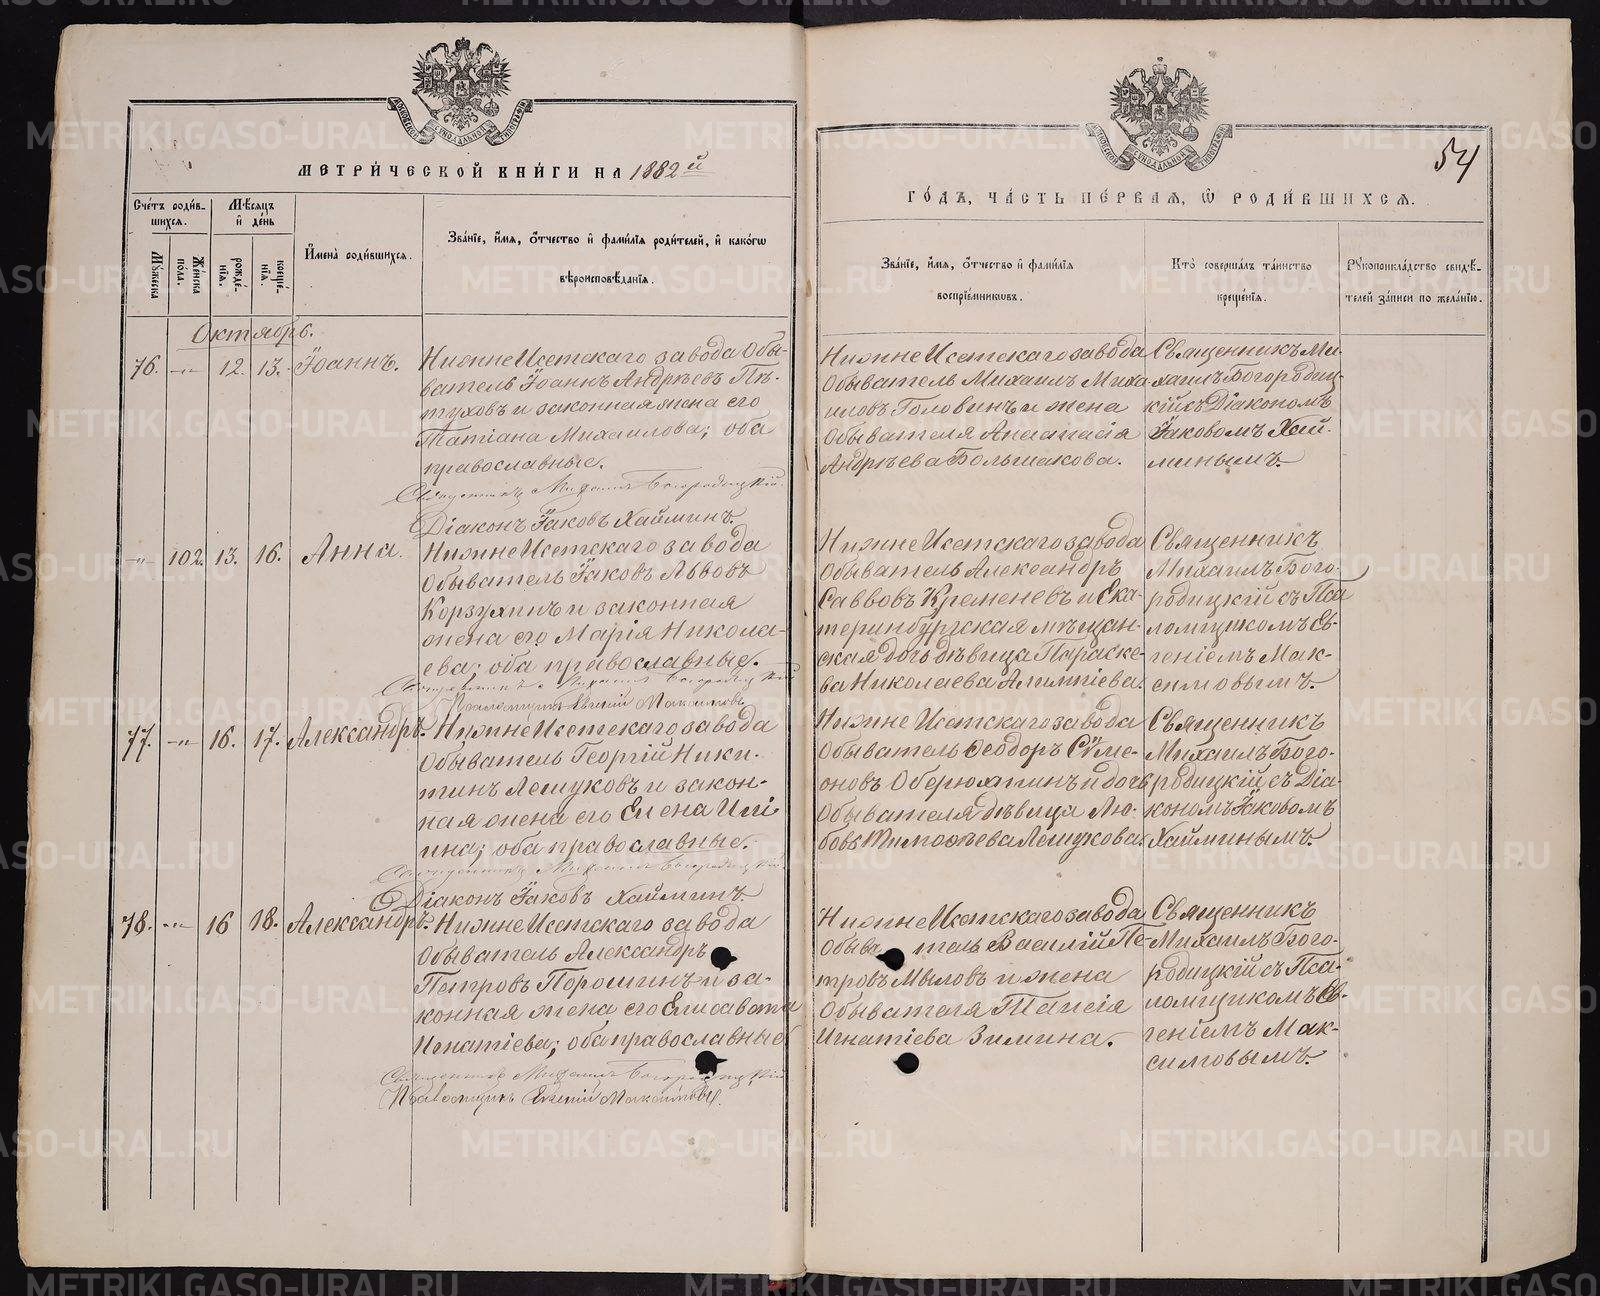 МЕТРИ́ЧЕСКОЙ КНИ́ГИ НА 1882й
Сче́тъ роди́в-
шихся.
Му́жеска
Же́нска
по́ла.
Мѣ́сяцъ
и҆ де́нь
рожде́-
нїя.
креще́-
нїя.
И҆мена̀ роди́вшихся.
Зва́нїе, и҆́мя, ѻ҆́тчество и҆ фами́лїя роди́телей, и҆ како́гѡ
вѣроисповѣ́данїя.
Октябрь.
76. -"- 12. 13. Іоаннъ.
НижнеИсетскаго завода Обы-
ватель Іоаннъ Андрѣевъ Пѣ-
туховъ и законная жена его
Татіана Михаилова; оба
православные.
Священникъ Михаилъ Богородицкій.
Діаконъ Іаковъ Хайминъ.
-"- 102. 13. 16. Анна.
НижнеИсетскаго завода
Обыватель Іаковъ Львовъ
Корзухинъ и законная
жена его Марія Никола-
ева; оба православные.
Священникъ Михаилъ Богородицкій
Псаломщикъ Евгеній Максимовъ
77. -"- 16. 17. Александръ.
НижнеИсетскаго завода
Обыватель Георгій Ники-
тинъ Лешуковъ и закон-
ная жена его Елена Или
ина; оба православные.
Священникъ Михаилъ Богородицкій
Діаконъ Іаковъ Хайминъ.
78. -"- 16 18. Александръ.
НижнеИсетскаго завода
Обыватель Александръ
Петровъ Порошинъ и за-
конная жена его Елисавета
Игнатіева; оба православные
Священникъ Михаилъ Богородицкій
Псаломщикъ Евгеній Максимовъ.
54
ГО́ДЪ, ЧА́СТЬ ПЕ́РВАЯ, Ѡ҆ РОДИ́ВШИХСЯ.
Зва́нїе, и҆́мя, ѻ҆́тчество и҆ фами́лїя
воспрїе́мниковъ.
Кто̀ соверша́лъ та́инство
креще́нїя.
Рꙋкоприкла́дство свидѣ́-
телей за́писи по жела́нїю.
НижнеИсетскаго завода
Обыватель Михаилъ Миха-
иловъ Головинъ и жена
Обывателя Анастасія
Андрѣева Большакова.
Священникъ Ми-
хаилъ Богородиц-
кій съ Діакономъ
Іаковомъ Хай-
минымъ.
НижнеИсетскаго завода
Обыватель Александръ
Саввовъ Кременевъ и Ека-
теринбургская мѣщан-
ская дочь дѣвица Параске-
ва Николаева Алимпіева.
Священникъ
Михаилъ Бого-
родицкій съ Пса
ломщикомъ Ев-
геніемъ Мак-
симовымъ.
Нижне Исетскаго завода
Обыватель Ѳеодоръ Сѵме-
оновъ Оберюхтинъ и дочь
Обывателя дѣвица Лю-
бовь Тимоѳѣева Лешукова.
Священникъ
Михаилъ Бого-
родицкій съ Діа-
кономъ Іаковомъ
Хайминымъ.
НижнеИсетскаго завода
Обыватель Василій Пе-
тровъ Мыловъ и жена
Обывателя Таисія
Игнатіева Зимина.
Священникъ
Михаилъ Бого-
родицкій съ Пса-
ломщикомъ Ев-
геніемъ Мак-
симовымъ.
METRIKI.GASO-URAL.RU